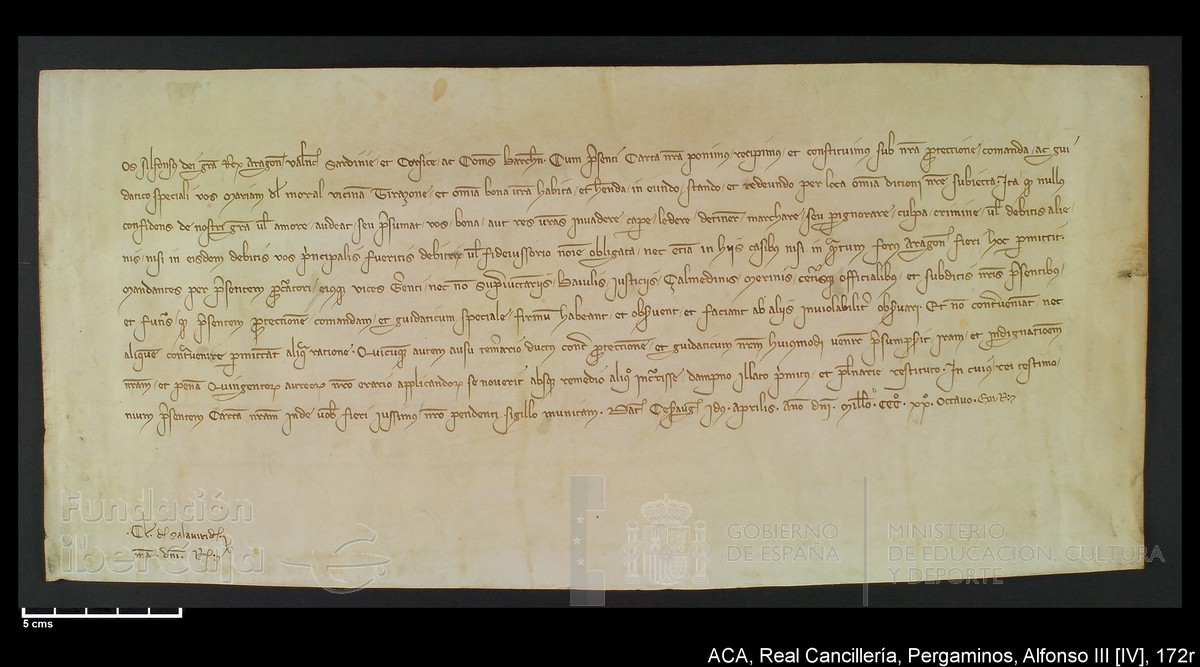 os Alfonsus dei gra Rex Aragon Valenc Sardinie et Corsice ac Comes Barchn. Cum psenti Carta nra ponimus recipimus et constituimus sub nra proteccione comanda ac gui
datico speciali vos Mariam del moral vicina Tirazone et omia bona vra habita et henda in eundo stando et redeundo per loca omia dicioni nre subiecta. Ita qd nullus
confidens de nostri gra vel amore audeat seu psumat vos bona aut res vras invadere cape ledere detinere marchare seu pignorare culpa crimine vel debitis alie
nis nisi in eisdem debitis vos principalis fueritis debitrix vel fideiussorio noie obligata nec etia in hiis casibus nisi in qntum foro Aragon fieri hoc pmittit.
mandantes per psentem procuratori eiusque vices gerenti nec no supiunctariis Baiulis iusticiis Calmedinis merinis ceterisque officialibus et subditis nris psentibus
et futuris qd psentem proteccione comandam et guidaticum speciale firmu habeant et observent et faciant ab aliis inviolabiliter observari Et no contraveniat nec
aliquem contravenire pmittat aliqua ratione. Quicumque autem ausu temerario ductus contra proteccione et guidaticum nrm huiusmodi venire psumpserit iram et indignationem
nram et pena Quingentorum aureorum nro erario applicandorum se noverit absque remedio aliquo incurrisse dampno illato primitus et plenarie restituto. In cuius rei testimo
nium psentem Carta nram inde vobis fieri iussimus nro pendenti sigillo munitam. Dat Cesaraug Idus Aprilis. Ano dni. Millo. CCCo. xxo. Octavo.
ma dni. R.
Fundación
ibercaja
GOBIERNO
DE ESPAÑA
MINISTERIO
DE EDUCACIÓN, CULTURA
Y DEPORTE
5 cms
ACA, Real Cancillería, Pergaminos, Alfonso III [IV], 172r